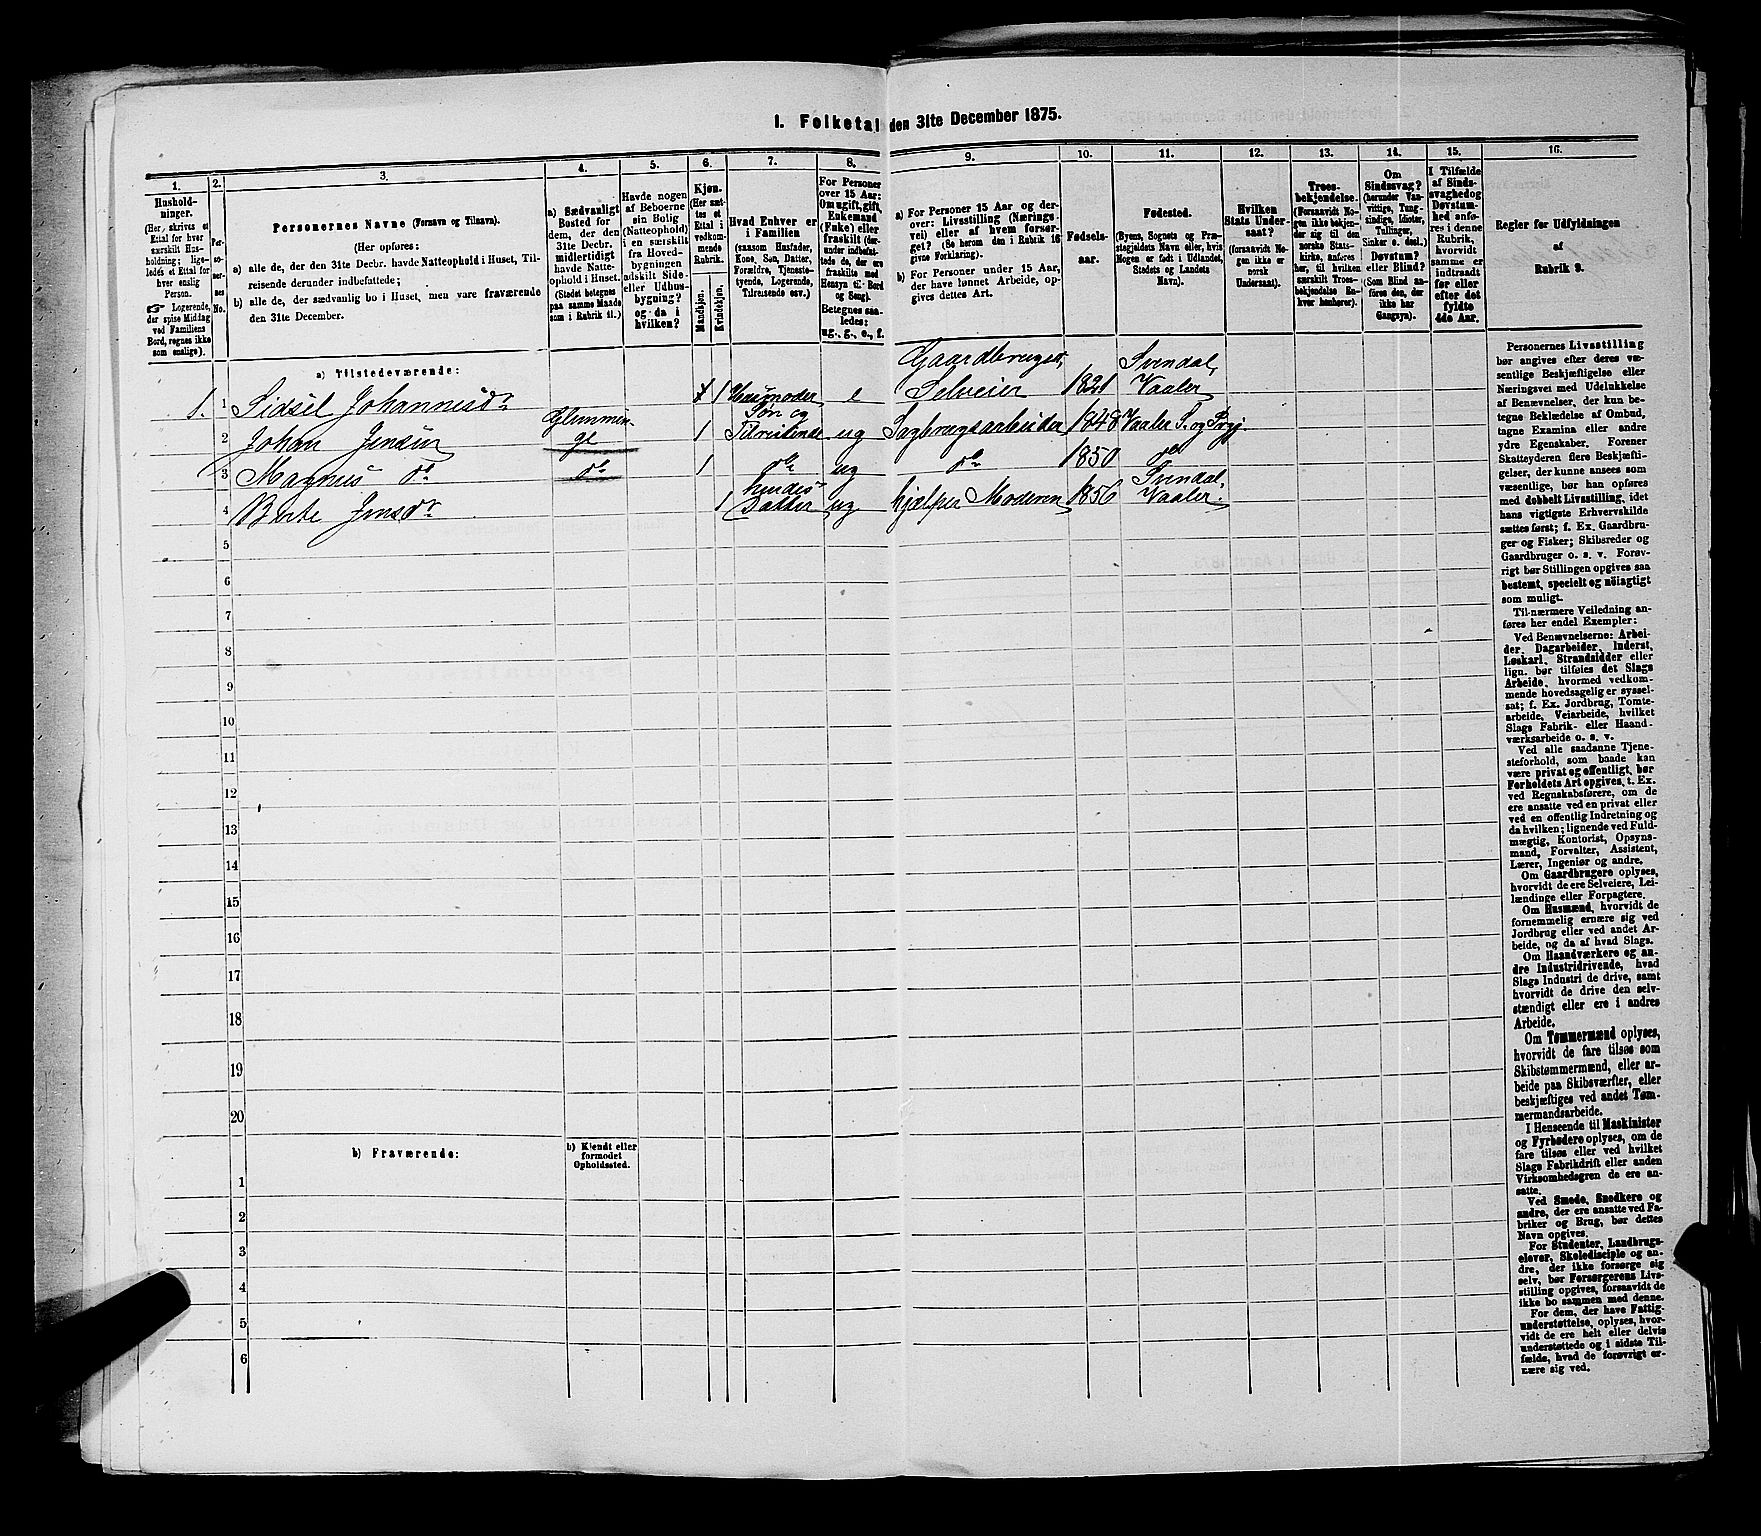 I. Folketal den 31te December 1875.
1. 2. 3. 4. 5. 6. 7. 8. 9. 10. 11. 12. 13. 14. 15. 16.
Husholdninger.
(Her skrives et
Ettal for hver
særskilt Husholdning;
ligeledes et Ettal for
hver enslig
Person.
☞ Logerende,
der spise Middag
ved Familiens
Bord, regnes ikke
som enslige).
Personernes No.
Personernes Navne (Fornavn og Tilnavn).
(Her opføres:
a) alle de, der den 31te Decbr. havde Natteophold i Huset, Tilreisende derunder indbefattede;
b) alle de, der sædvanlig bo i Huset, men vare fraværende
den 31te December.
a) Sædvanligt
Bosted for
dem, der den
31te Decbr.
midlertidigt
havde Natteophold i Huset.
(Stedet betegnes
paa samme Maade
som i Rubrik 11.)
Havde nogen
af Beboerne
sin Bolig
(Natteophold)
i en særskilt
fra Hovedbygningen
adskilt Side- eller Udhusbygning?
og da i
hvilken?
Kjøn.
(Her sættes et
Ettal i
vedkommende
Rubrik.
Mandkjøn.
Kvindekjøn.
Hvad Enhver er
i Familien
(saasom Husfader,
Kone, Søn, Datter,
Forældre, Tjenestetyende, Logerende,
Tilreisende osv.)
For Personer
over 15 Aar:
Om ugift, gift,
Enkemand
(Enke) eller
fraskilt (derunder indbefattede de, der ere
fraskilte med
Hensyn til Bord
og Seng).
Betegnes saaledes:
ug., g., e., f.
a) For Personer 15 Aar og derover: Livsstilling (Næringsvei) eller af hvem forsørget? (Se herom den i Rubrik 16
givne Forklaring).
b) For Personer under 15 Aar,
der have lønnet Arbeide, opgives dettes Art.
Fødselsaar.
Fødested.
(Byens, Sognets og Præstegjeldets Navn eller, hvis
Nogen er født i Udlandet,
Stedets og Landets
Navn).
Hvilken
Stats Undersaat?
(forsaavidt Nogen ikke er
norsk
Undersaat).
Troesbekjendelse.
(Forsaavidt Nogen ikke bekjender sig til den
norske Statskirke, anføres
her, til hvilken
særskilt Troesbekjendelse Enhver henhører).
Om
Sindssvag?
(herunder Vanvittige, Tungsindige, Idioter,
Tullinger,
Sinker o. desl.)
Døvstum?
eller Blind?
(Som Blind anføres den, der
ikke har
Gangsyn).
I Tilfælde
af Sindssvaghed og
Døvstumhed anføres i denne
Rubrik,
hvorvidt
samme er
indtraadt
før eller
efter det
fyldte
4de Aar.
Regler for Udfyldningen
af
Rubrik 9.
a) Tilstedeværende:
Gaardbruger, Svendal,
1. 1 Sidsel Johannesdr 1 Husmoder e Selveier 1821 Vaaler
Glemmin- Søn og
2 Johan Jensen ge 1 Tilreisende ug Sagbrugsarbeider 1848 Vaaler S. og Prgj.
3 Magnus do do 1 do ug do 1850 do
hendes Svendal,
4 Berte Jensdr 1 Datter ug hjælper Moderen 1856 Vaaler.
5
6
7
8
9
10
11
12
13
14
15
16
17
18
19
20
b) Fraværende:
b) Kjendt eller
formodet
Opholdssted.
1
2
3
4
5
6
Personernes Livsstilling
bør angives efter deres væsentlige Beskjæftigelse eller
Næringsvei med Udelukkelse
af Benævnelser, der kun betegne Beklædelse af Ombud,
tagne Examina eller andre
ydre Egenskaber. Forener
Skatteyderen flere Beskjæftigelser, der kunne ansees som
væsentlige, bør han opføres
med dobbelt Livsstilling, idet
hans vigtigste Erhvervskilde
sættes først; f. Ex. Gaardbruger og Fisker; Skibsreder og
Gaardbruger o. s. v. Forøvrigt bør Stillingen opgives saa
bestemt, specielt og nøiagtigt
som muligt.
Til nærmere Veiledning anføres her endel Exempler:
Ved Benævnelserne: Arbeider, Dagarbeider, Inderst,
Løskarl, Strandsidder eller
lign. bør tilføies det Slags
Arbeide, hvormed vedkommende hovedsagelig er sysselsat; f. Ex. Jordbrug, Tomtearbeide, Veiarbeide, hvilket
Slags Fabrik- eller Haandværksarbeide o. s. v.
Ved alle saadanne Tjenesteforhold, som baade kan
være privat og offentligt, bør
Forholdets Art opgives, t. Ex.
ved Regnskabsførere, om de
ere ansatte ved en privat eller
ved en offentlig Indretning og
da hvilken; lignende ved Fuldmægtig, Kontorist, Opsynsmand, Forvalter, Assistent,
Lærer, Ingeniør og andre.
Om Gaardbrugere oplyses,
hvorvidt de ere Selveiere, Leilændinge eller Forpagtere.
Om Husmænd, hvorvidt de
fornemmelig ernære sig ved
Jordbrug eller ved andet Arbeide, og da af hvad Slags.
Om Haandværkere og andre Industridrivende, hvad
Slags Industri de drive, samt
hvorvidt de drive den selvstændigt eller ere i andres
Arbeide.
Om Tømmermænd oplyses,
hvorvidt de fare tilsøs som
Skibstømmermænd, eller arbeide paa Skibsværfter, eller
beskjæftiges ved andet Tømmermandsarbeide.
I Henseende til Maskinister
og Fyrbødere oplyses, om de
fare tilsøs eller ved hvilket
Slags Fabrikdrift eller anden
Virksomhedsgren de ere ansatte.
Ved Smede, Snedkere og
andre, der ere ansatte ved Fabriker og Brug, bør dettes
Navn opgives.
For Studenter, Landbrugselever, Skoledisciple og andre, der ikke forsørge sig
selv, bør Forsørgerens Livsstilling opgives, forsaavidt de
ikke bo sammen med denne.
For dem, der have Fattigunderstøttelse, oplyses, hvorvidt de ere helt eller delvis
understøttede og i sidste Tilfælde, hvad de forøvrigt ernære sig ved.